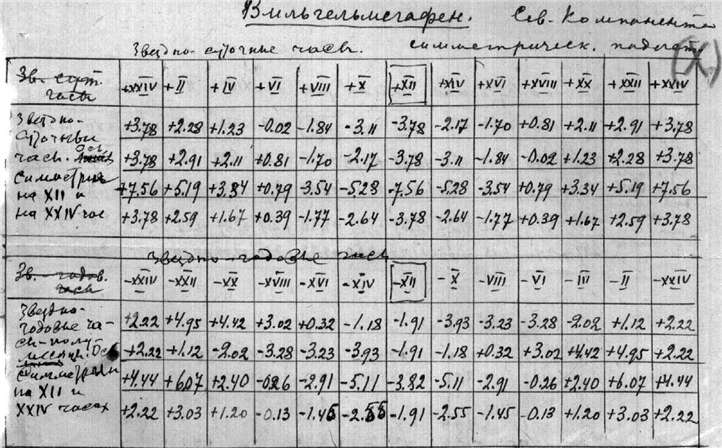 Вильгельмсгафен. Сев. Компонента
Звездно-суточные часы. симметрическ. подсчеты (X)
Зв. сут. часы +XXIV +II +IV +VI +VIII +X +XII +XIV +XVI +XVIII +XX +XXII +XXIV
Звездно- +3.78 +2.28 +1.23 -0.02 -1.84 -3.11 -3.78 -2.17 -1.70 +0.81 +2.11 +2.91 +3.78
суточные
часы. Ось +3.78 +2.91 +2.11 +0.81 -1.70 -2.17 -3.78 -3.11 -1.84 -0.02 +1.23 +2.28 +3.78
симметрии
на XII и +7.56 +5.19 +3.34 +0.79 -3.54 -5.28 -7.56 -5.28 -3.54 +0.79 +3.34 +5.19 +7.56
на XXIV час +3.78 +2.59 +1.67 +0.39 -1.77 -2.64 -3.78 -2.64 -1.77 +0.39 +1.67 +2.59 +3.78
Звездно-годовые часы
Зв. годов. часы -XXIV -XXII -XX -XVIII -XVI -XIV -XII -X -VIII -VI -IV -II -XXIV
Звездно-
годовые ча- +2.22 +4.95 +4.42 +3.02 +0.32 -1.18 -1.91 -3.93 -3.23 -3.28 -2.02 +1.12 +2.22
сы-полу
месяцы. Ось +2.22 +1.12 -2.02 -3.28 -3.23 -3.93 -1.91 -1.18 +0.32 +3.02 +4.42 +4.95 +2.22
симметрии +4.44 +6.07 +2.40 -0.26 -2.91 -5.11 -3.82 -5.11 -2.91 -0.26 +2.40 +6.07 +4.44
на XII и
XXIV часах +2.22 +3.03 +1.20 -0.13 -1.45 -2.55 -1.91 -2.55 -1.45 -0.13 +1.20 +3.03 +2.22